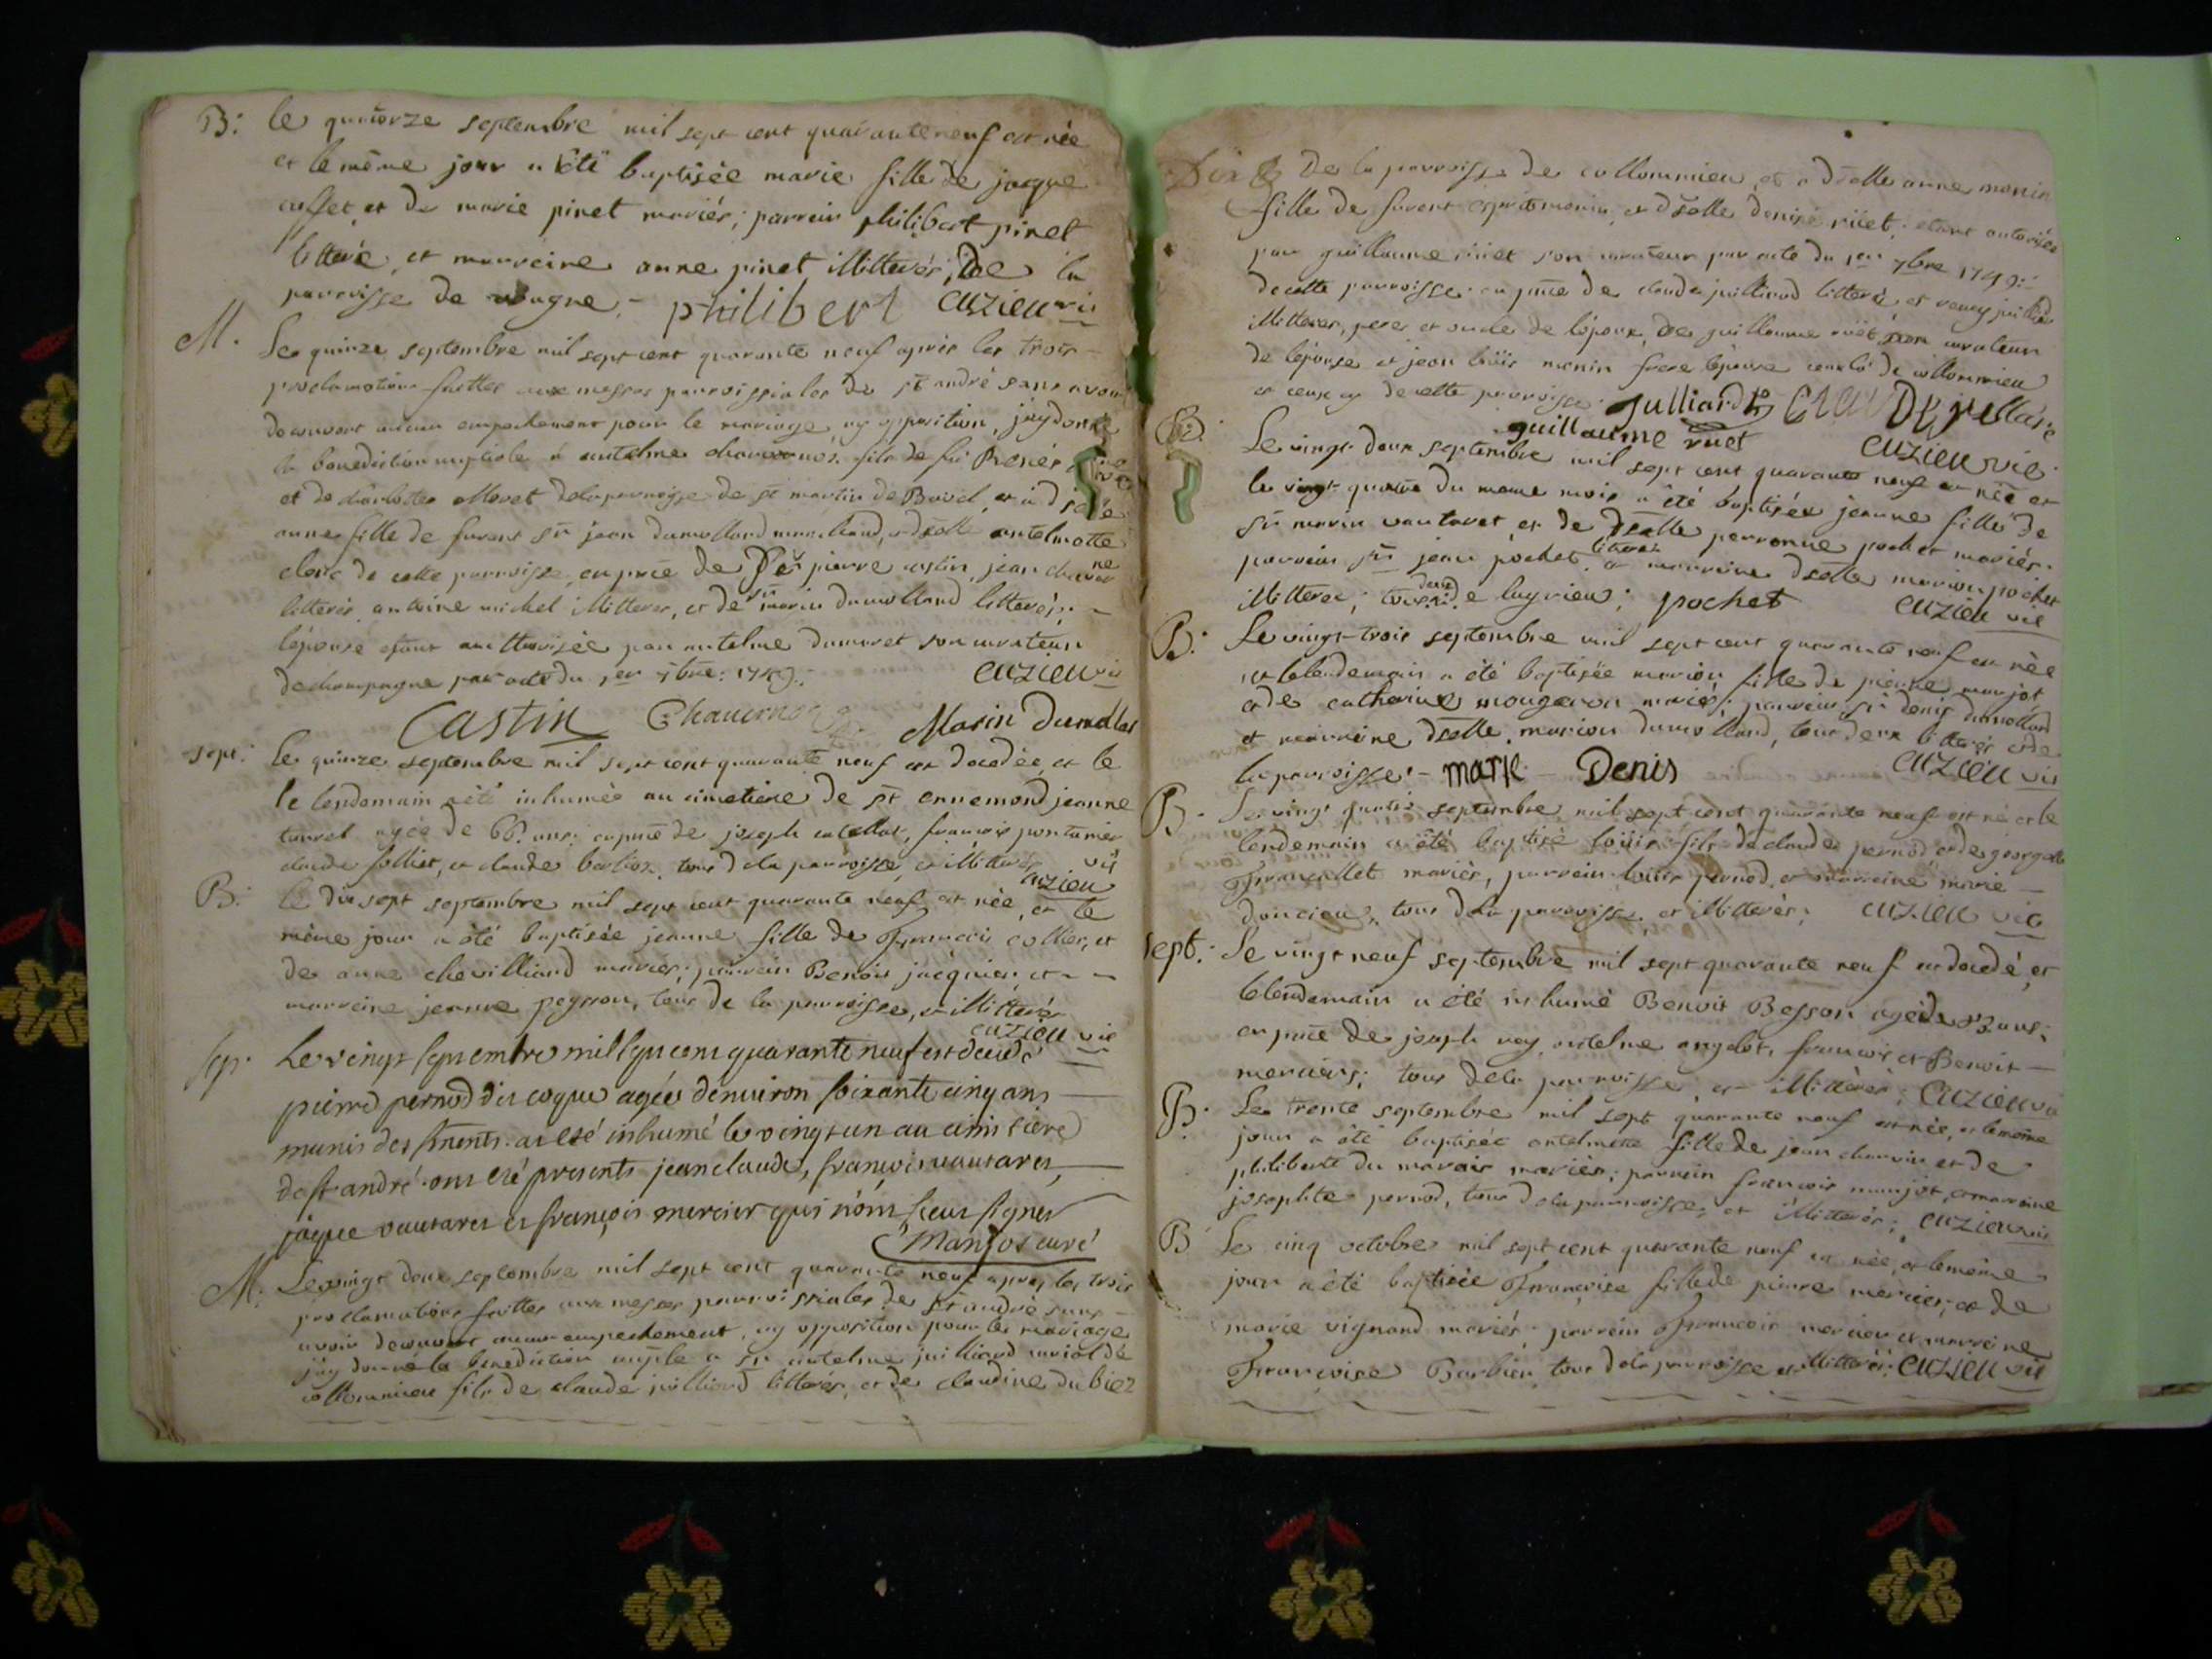 B: le quatorze septembre mil sept cent quarante neuf est née
et le même jour a été baptisée marie fille de jacque
cusset et de marie pinet mariés; parrein philibert pinet
litteré, et marreine anne pinet illitterés, de la
parroisse de - philibert cuzieu vic
M. Le quinze septembre mil sept cent quarante neuf après les trois
proclamations faittes aux messes parroissiales de st andré sans avoir
decouvert aucun empechement pour le mariage ny opposition, j'ay donné
la benediction nuptiale à antelme fils de fû
et de de la parroisse de st martin de Bavel, et à dselle
anne fille de furent sr jean dumollard marchand, et dselle antelmette
clerc de cette parroisse, en pñce de pierre castin, jean
litterés, antoine michel illitteres, et de sr marin dumollard litterés; -
l'épouse etant authorisée par antelme dumaret son curateur
de champagne par acte du 1er 7bre: 1749: cuzieu vic
Castin Marin Dumollar
sept: le quinze septembre mil sept cent quarante neuf est decedée, et le
le lendemain a été inhumée au cimetiere de st ennemond jeanne
agée de 66. ans: en pñce de joseph francois pontanier
claude et claude barbier, tous de la parroisse, et illitterés cuzieu vic
B: le dix sept septembre mil sept cent quarante neuf est née, et le
même jour a été baptisée jeanne fille de francois collier, et
de anne chevilliard mariés; parrein Benoit jacquier, et
marreine jeanne peysson, tous de la parroisse, et illitterés
cuzieu vic
sep. Le vingt septembre mil sept cent quarante neuf est decedé
pierre pernod dit coque agée d'environ soixante cinq ans
munis des sments a esté inhumé le vingt un au cimitiere
de st andré ont été presents jean claude, françois vautaret,
jaque vautaret et françois mercier qui n'ont sceus signer
Marjos curé
M. Le vingt deux septembre mil sept cent quarante neuf apres les trois
proclamations faittes aux messes parroissiales de st andré sans
avoir decouvert aucun empechement, ny opposition pour le mariage
j'ay donné la benediction nuptle a sr antelme juilliard de
collommieu fils de claude juilliard litterés, et de claudine dubiez
De la parroisse de collommieu, et a dselle anne monin
fille de furent monin, et dselle denise rüet; etant autorisée
par guillaume rüet son curateur par acte du 1er 7bre 1749:
de cette parroisse: en pñce de claude juilliard litteré et juilliard
illitteres, pere et oncle de l'époux, de guillaume rüet curateur
de l'épouse et jean loüis monin frere l'épouse ceux là de collommieu
et ceux cy de cette parroisse. Julliard
guillaume ruet cuzieu vic
B. Le vingt deux septembre mil sept cent quarante neuf est née et
le vingt quatre du meme mois a été baptisée jeanne fille de
sr marin vautaret et de dselle perronne pochet mariés.
parrein sr jean pochet litteré et marreine dselle marion pochet
illitteree; tous deux de luyrieu; pochet cuzieu vic
B. Le vingt-trois septembre mil sept cent quarante neuf est née
et le lendemain a été baptisée marion fille de pierre marjot
et de catherine mougeron mariés; parrein sr denis dumollard
et marreine dselle. marion dumollard, tous deux litterés et de
la parroisse: - marie - Denis cuzieu vic
B. Le vingt quatre septembre mil sept cent quarante neuf est né et le
lendemain a été baptisé loüis fils de claude pernod, et de georgette
françallet mariés, parrein loüis pernod, et marreine marie
doncieu, tous de la parroisse, et illitterés; cuzieu vic
sept. Le vingt neuf septembre mil sept quarante neuf est decedé, et
le lendemain a été inhumé Benoit Besson agé de ans;
en pñce de joseph rey, antelme angelot, francois et Benoit
merciers; tous de la parroisse, et illitterés; cuzieu vic
B. Le trente septembre mil sept quarante neuf est née, et le même
jour a été baptisée antelmette fille de jean charvin et de
philiberte du marais mariés; parrein francois marjot, et marreine
josephte pernod, tous de la parroisse, et illitterés; cuzieu vic
B Le cinq octobre mil sept cent quarante neuf est née, et le même
jour a été baptisée françoise fille de pierre mercier, et de
marie vignard mariés; parrein francois mercier et marreine
françoise Barbier, tous de la parroisse et illitterés: cuzieu vic